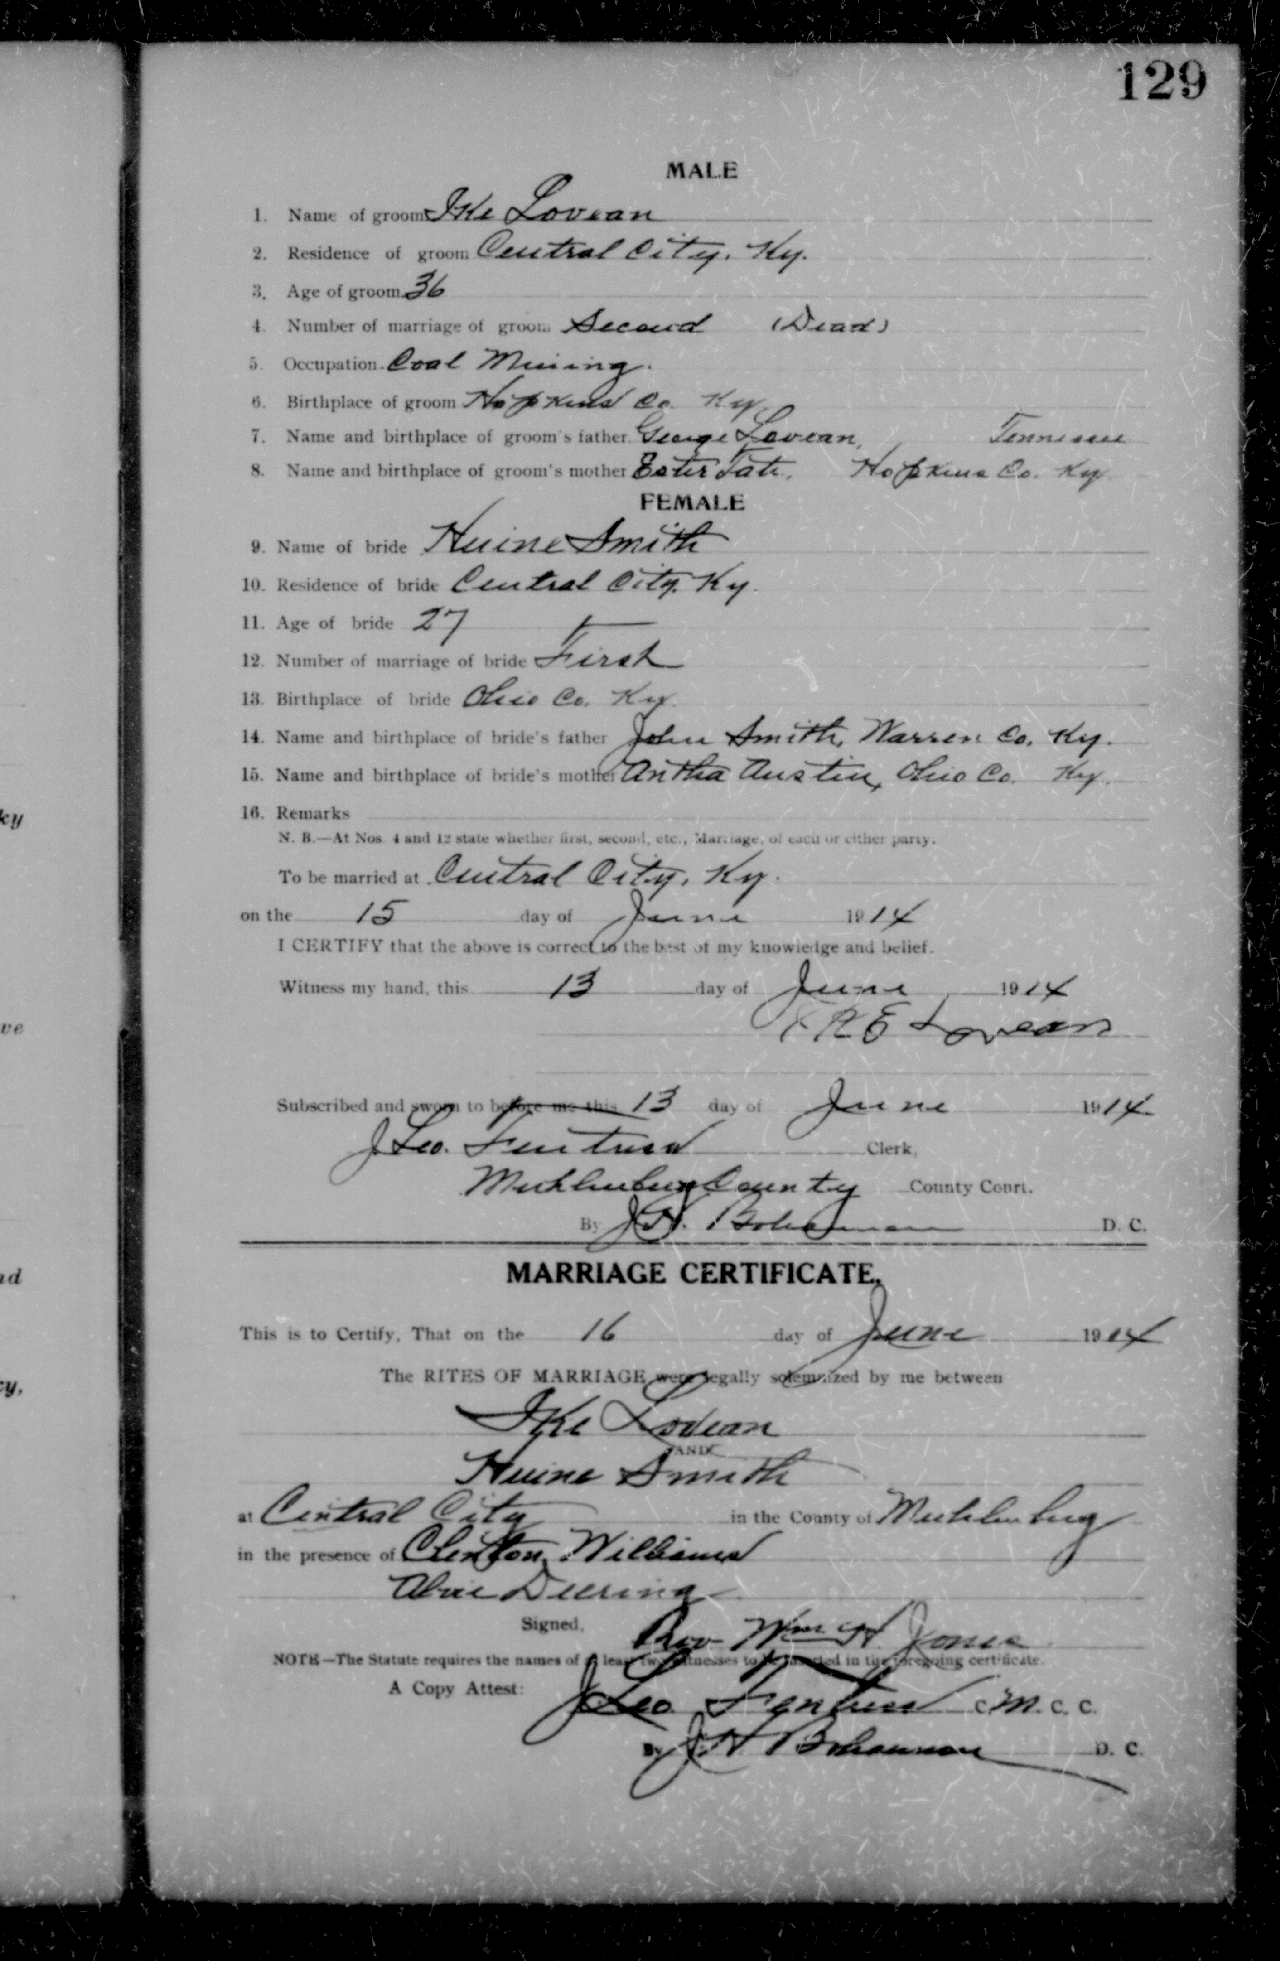 129
MALE
1. Name of groom Ike Lovean
2. Residence of groom Central City, Ky.
3. Age of groom 36
4. Number of marriage of groom Second (Dead)
5. Occupation Coal Mining.
6. Birthplace of groom Hopkins Co. Ky.
7. Name and birthplace of groom's father George Lovean, Tennessee
8. Name and birthplace of groom's mother Ester Tate, Hopkins Co. Ky
FEMALE
9. Name of bride Smith
10. Residence of bride Central City, Ky.
11. Age of bride 27
12. Number of marriage of bride First
13. Birthplace of bride Ohio Co. Ky.
14. Name and birthplace of bride's father John Smith, Warren Co. Ky.
15. Name and birthplace of bride's mother Antha Austin, Ohio Co. Ky.
16. Remarks
N. B.—At Nos. 4 and 12 state whether first, second, etc., Marriage, of each or either party.
To be married at Central City, Ky.
on the 15 day of June 1914
I CERTIFY that the above is correct to the best of my knowledge and belief.
Witness my hand, this 13 day of June 1914
Lovean
Subscribed and sworn to before me this 13 day of June 1914
J. Leo. Fentress Clerk,
Muhlenburg County County Court.
By J. H. Bohannon D. C.
MARRIAGE CERTIFICATE.
This is to Certify, That on the 16 day of June 1914
The RITES OF MARRIAGE were legally solemnized by me between
Ike Lovean
AND
Smith
at Central City in the County of Muhlenburg
in the presence of Clenton Williams
Deering
Signed, Rev Wm H. Jones
NOTE—The Statute requires the names of at least two witnesses to be inserted in the foregoing certificate.
A Copy Attest: J. Leo. Fentress C. M. C. C.
By J. H. Bohannon D. C.
ky
ve
nd
cy,